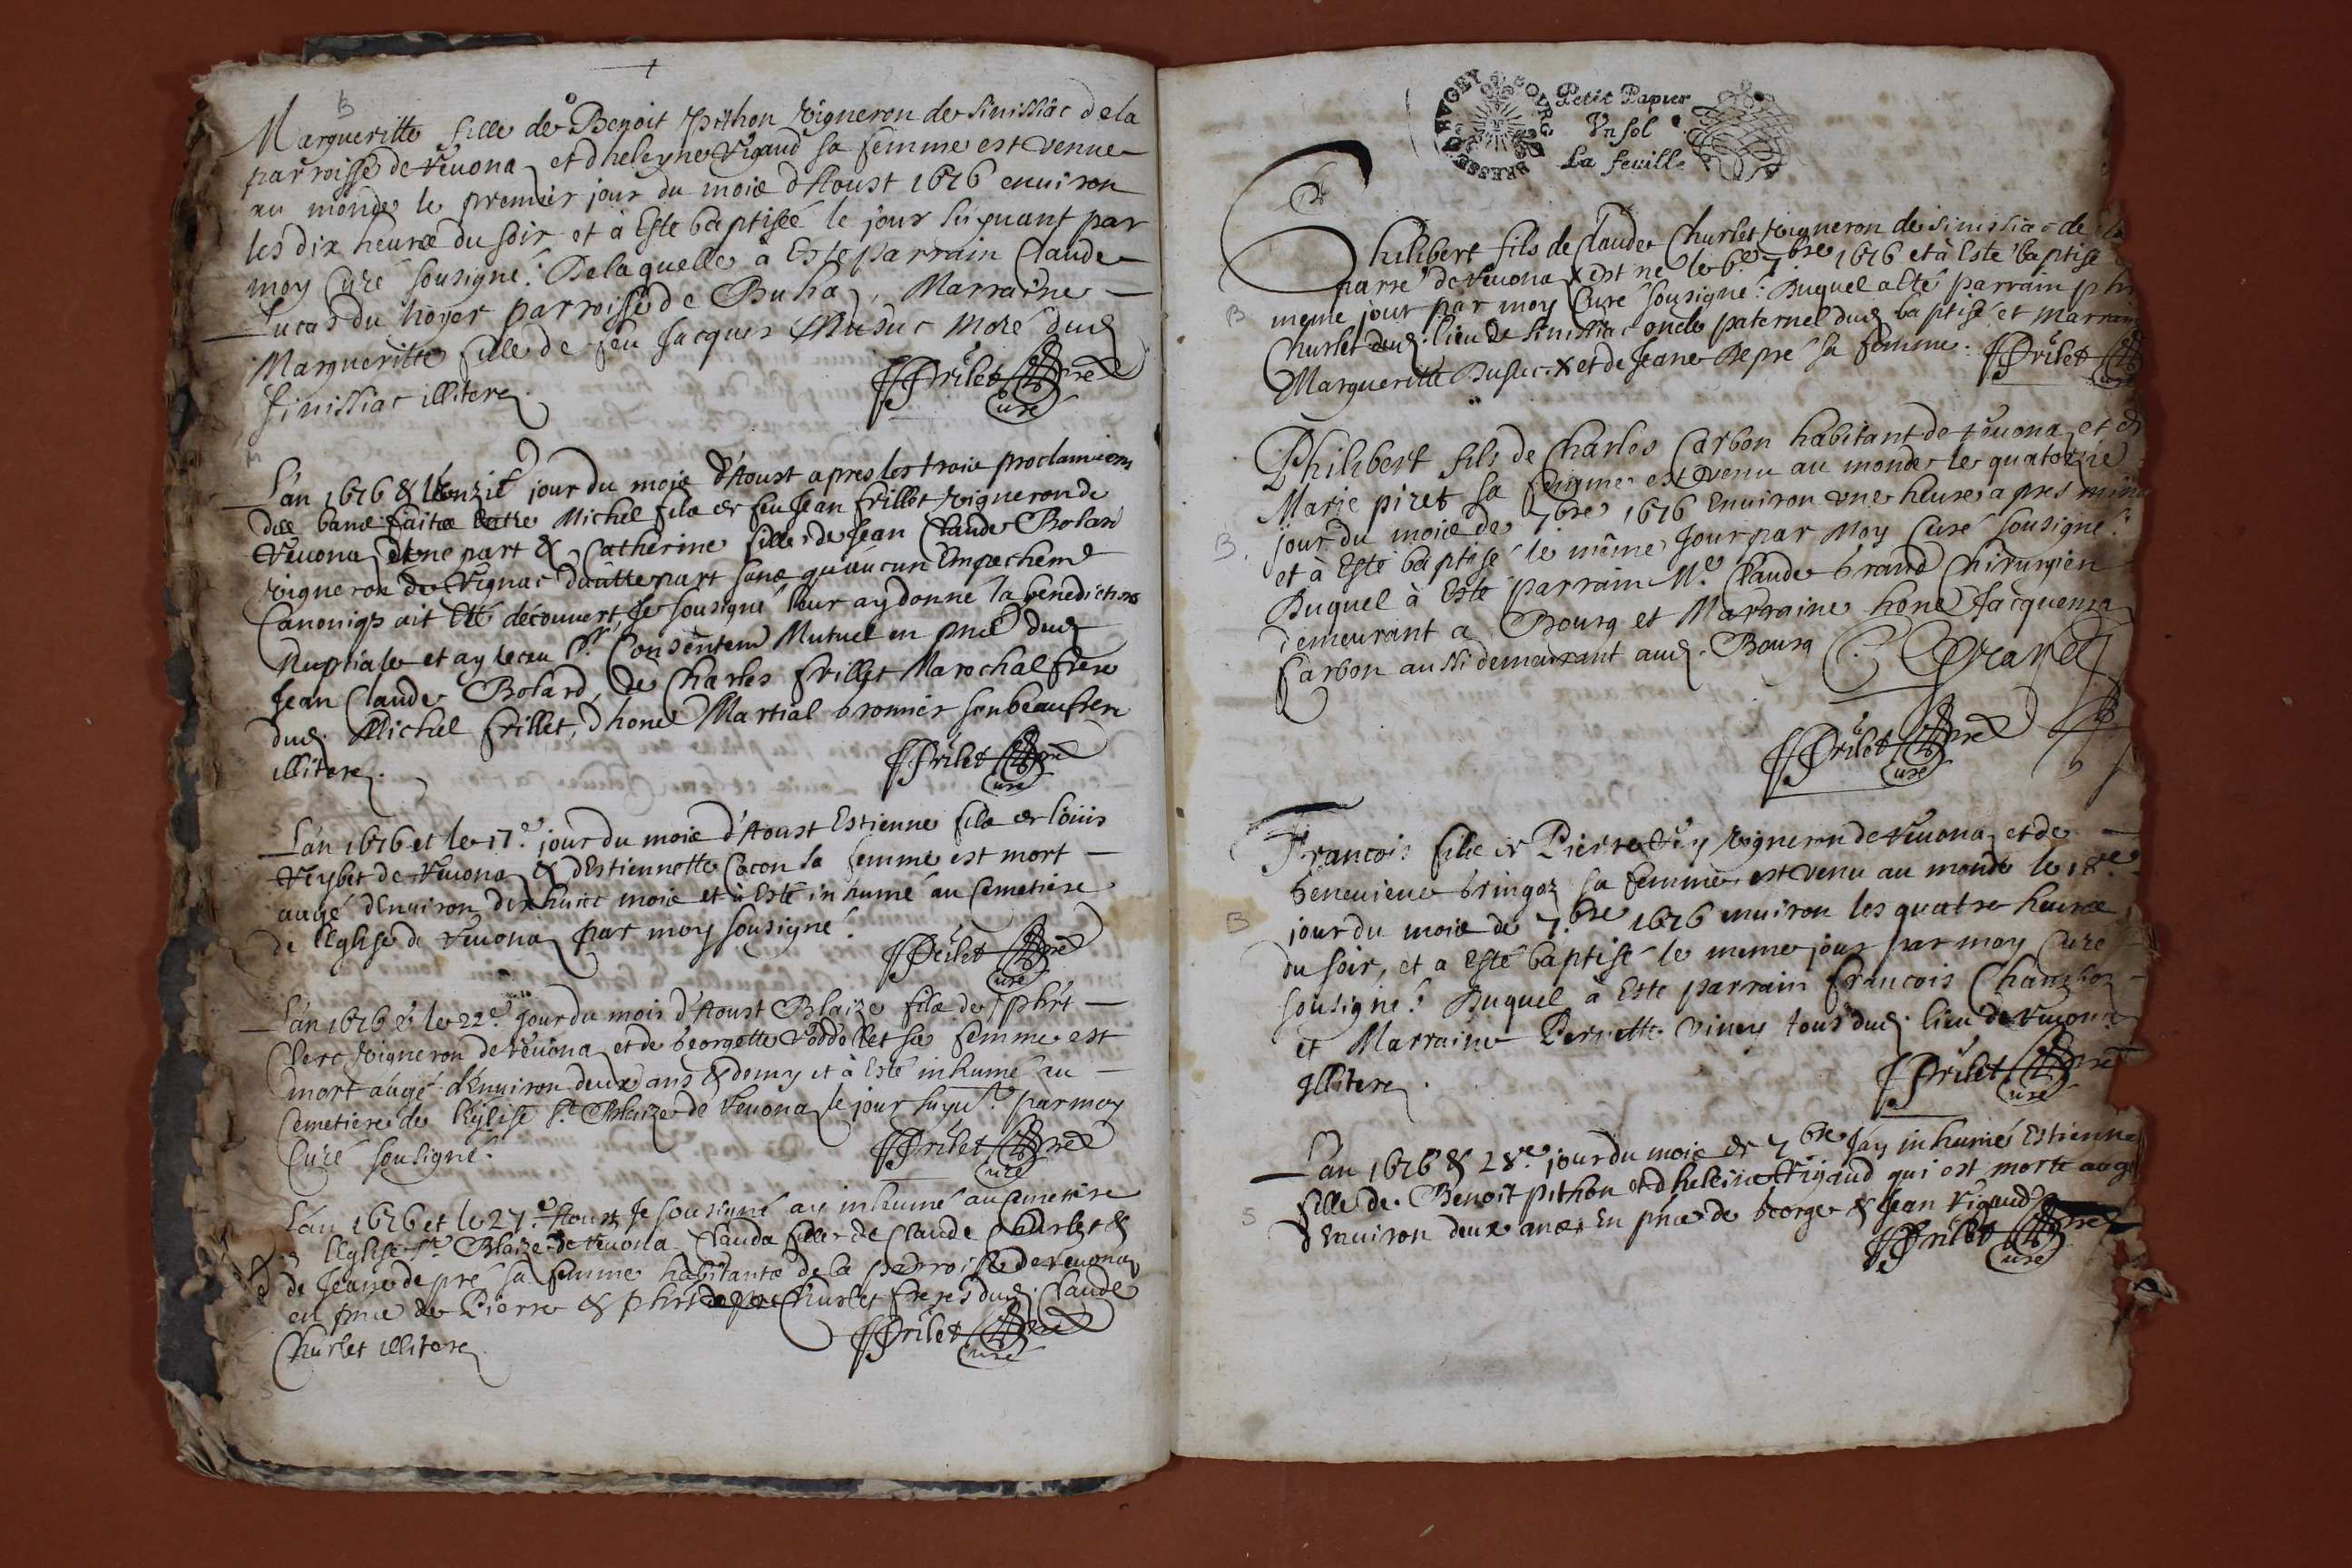 B
Margueritte fille de Benoit pithon vigneron de Sinissiac de la
parroisse de Reuona et dheleyne Rigaud sa femme est venue
au monde le premier jour du mois d'Aoust 1676 enuiron
les dix heures du soir et à Esté baptisée le jour suyuant par
moy Curé sousigné. De laquelle à Esté parrain Claude
Lucas du hoyer parroisse de Buha, Marraine
Margueritte fille de feu Jacques Dusuc More dud
Sinissiac illitere
Frilet pre
Curé
M
L'an 1676 & l'onzie jour du mois d'Aoust apres les trois proclamaions
des bans faites entre Michel fils de feu Jean frillet vigneron de
Reuona d'une part & Catherine fille de Jean Claude Bolard
vigneron de Rignac d'autre part sans qu'aucun Empechemt
Canoniq ait Eté découuert, Je sousigné leur ay donné la benediction
Nuptiale et ay receu lr Consentem Mutuel en pnce dud
Jean Claude Bolard, de Charles frillet Marechal frere
dud. Michel frillet, d'hone Martial bronnier son beaufrere
illitere.
Frilet pre
Curé
L'an 1676 et le 17e jour du mois d'Aoust Estienne fils de loüis
Reybet de Reuona & d'Estiennette Cocon sa femme est mort
augé d'Enuiron dix huict mois et à Esté inhumé au Cemetiere
de l'Eglise de Reuona par moy sousigné.
Frilet pre
Curé
L'an 1676 & le 22e Jour du mois d'Aoust Blaize fils de phrt
Clerc vigneron de Reuona et de Georgette Voddellet sa femme est
mort augé d'Enuiron deux ans & demy et à Esté inhumé au
Cemetiere de l'Eglise St Blaize de Reuona le jour suyut par moy
Curé sousigné.
Frilet pre
Curé
L'an 1676 et le 27e Aoust Je sousigné ay inhumé au Cemetiere
de l'Eglise St Blaize de Reuona Clauda fille de Claude Churlet &
de Jeane depré sa femme habitants de la parroisse de Reuona
en pnce de Pierre & phrt Churlet freres dud. Claude
Churlet illitere
Frilet pre
Curé
S
BRESSE BVGEY BOVRG
Petit Papier
Vn sol
La feuille
Philibert fils de Claude Churlet vigneron de Sinissiac de la
parre de Reuona X est né le 6e 7bre 1676 et à Esté baptisé
B
meme jour par moy Curé sousigné: Duquel a Eté parrain phi
Churlet dud. lieu de Sinissiac oncle paternel dud baptisé et marrain
Margueritte Dusuc. X et de Jeane Depré sa femme.
Frilet
Curé
Philibert fils de Charles Carbon habitant de Reuona et de
Marie piret sa femme est venu au monde le quatorzie
B.
jour du mois de 7bre 1676 Enuiron vne heure apres minu
et à Esté baptisé le même Jour par Moy Curé sousigné:
Duquel à Esté parrain Me Claude brand Chirurgien
demeurant a Bourg et Marraine hone Jacquema
Carbon aussi demeurant aud. Bourg
Frilet pre
Curé
Francois fils de Pierre Rey vigneron de Reuona et de
Geneuieue bringoz sa femme est venu au monde le 18e
B
jour du mois de 7bre 1676 enuiron les quatre heures
du soir, et a Esté baptisé le meme jour par moy Curé
sousigné: Duquel à Esté parrain francois Chambon
et Marraine Pernette viney tous dud. lieu de Reuona
Illitere.
Frilet pre
Curé
L'an 1676 & 28e jour du mois de 7bre J'ay inhumé Estienna
fille de Benoit pithon et d'heleine Rigaud qui est morte augé
S
d'Enuiron deux ans. En pnce de George & Jean Rigaud
Frilet pre
Curé